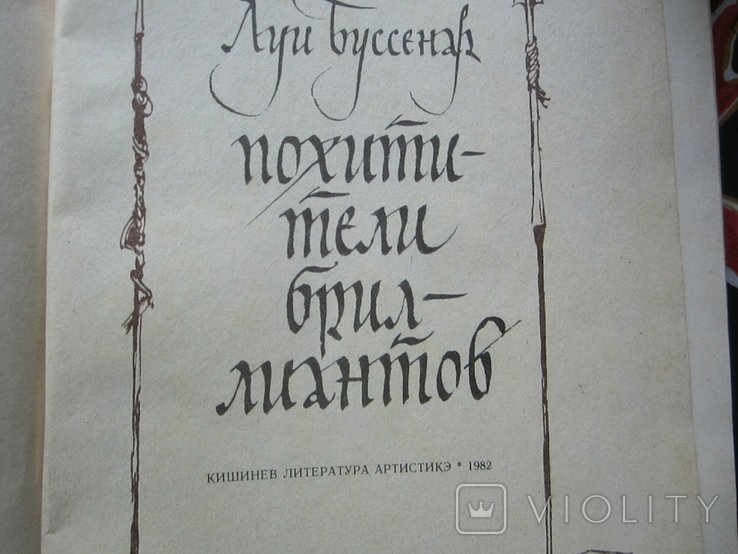 Луи Буссенар
похити-
тели
брил-
лиантов
КИШИНЕВ ЛИТЕРАТУРА АРТИСТИКЭ * 1982
VIOLITY